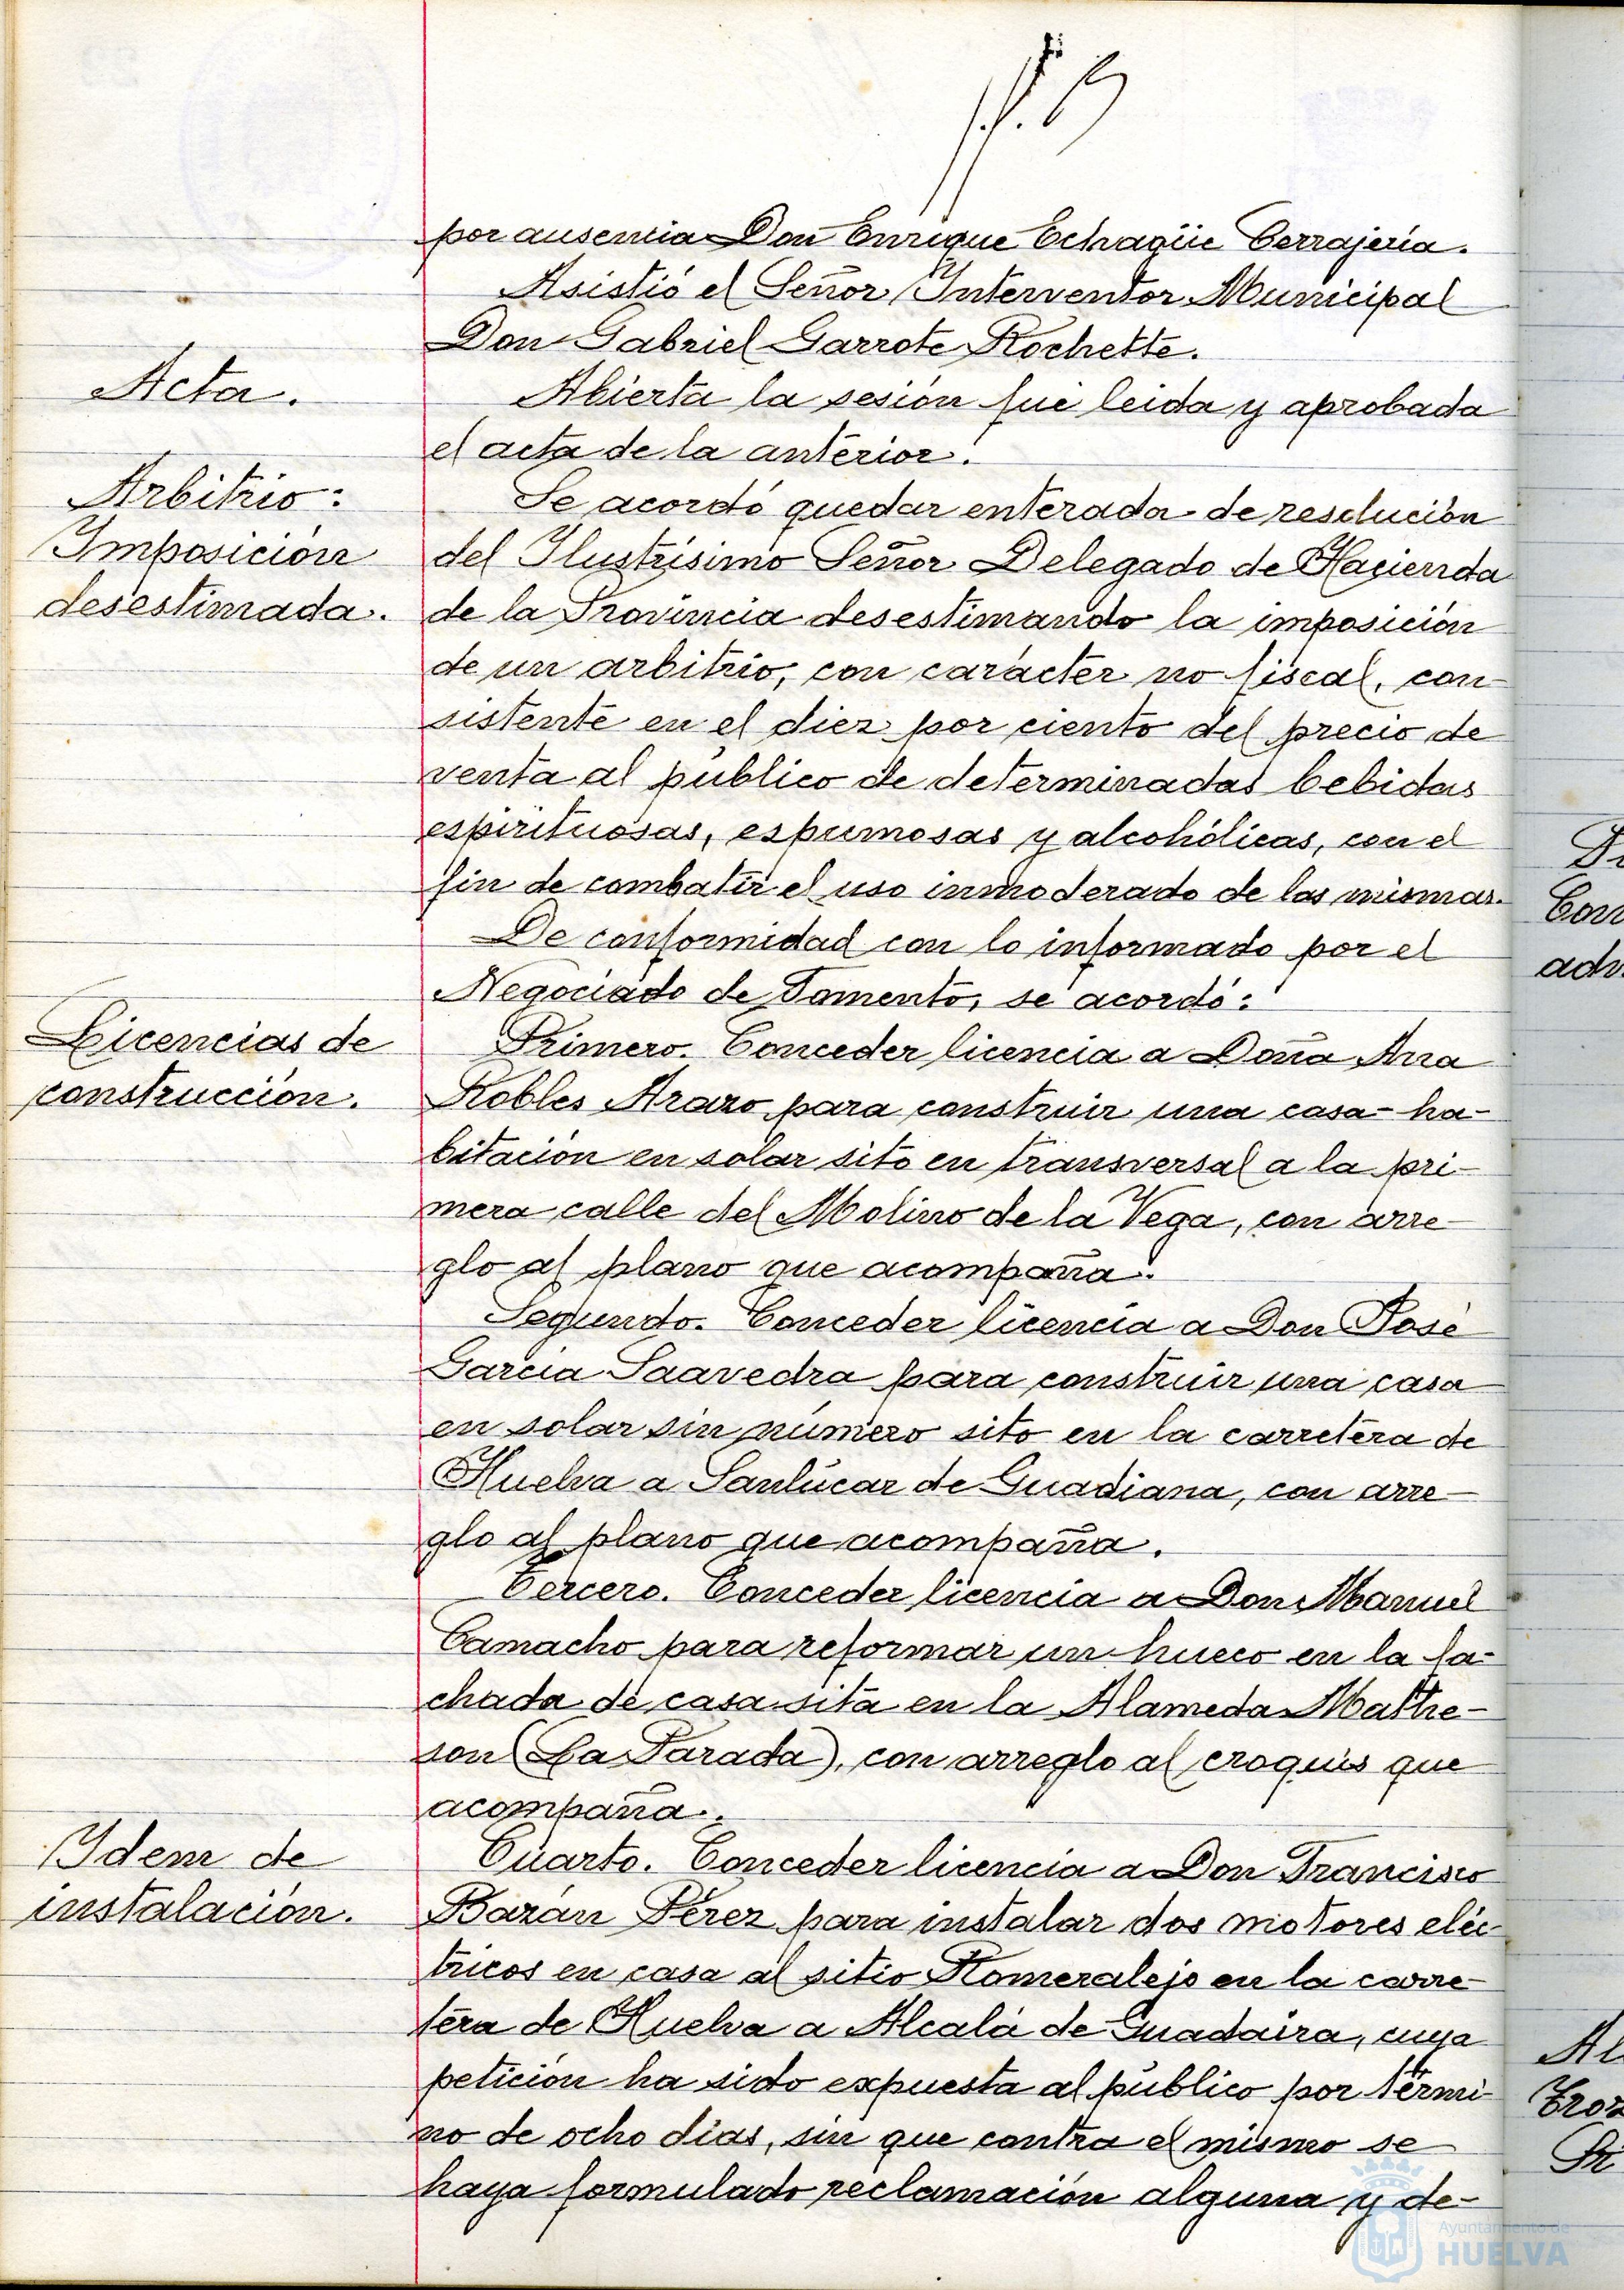 por ausencia Don Enrique Echagüe Cerrajería.
Asistió el Señor Interventor Municipal
Don Gabriel Garrote Rochette.
Acta.
Abierta la sesión fué leida y aprobada
el acta de la anterior.
Arbitrio:
Imposición
desestimada.
Se acordó quedar enterada de resolución
del Ilustrísimo Señor Delegado de Hacienda
de la Provincia desestimando la imposición
de un arbitrio, con carácter no fiscal, con-
sistente en el diez por ciento del precio de
venta al público de determinadas bebidas
espirituosas, espumosas y alcohólicas, con el
fin de combatir el uso inmoderado de las mismas.
De conformidad con lo informado por el
Negociado de Fomento, se acordó:
Licencias de
construcción.
Primero. Conceder licencia a Doña Ana
Robles Arazo para construir una casa-ha-
bitación en solar sito en transversal a la pri-
mera calle del Molino de la Vega, con arre-
glo al plano que acompaña.
Segundo. Conceder licencia a Don José
García Saavedra para construir una casa
en solar sin número sito en la carretera de
Huelva a Sanlúcar de Guadiana, con arre-
glo al plano que acompaña.
Tercero. Conceder licencia a Don Manuel
Camacho para reformar un hueco en la fa-
chada de casa sita en la Alameda Mattre-
son (La Parada), con arreglo al croquis que
acompaña.
Idem de
instalación.
Cuarto. Conceder licencia a Don Francisco
Bazán Pérez para instalar dos motores eléc-
tricos en casa al sitio Romeralejo en la carre-
tera de Huelva a Alcalá de Guadaira, cuya
petición ha sido expuesta al público por térmi-
no de ocho días, sin que contra el mismo se
haya formulado reclamación alguna y de-
Ayuntamiento de
HUELVA